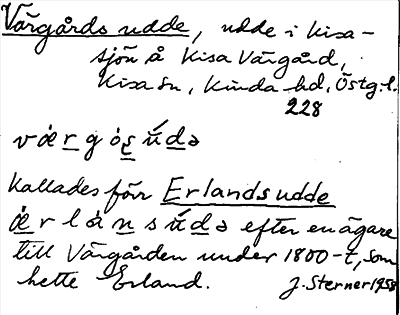 Värgårds udde, udde i Kisa-
sjön å Kisa Värgård,
Kisa sn, Kinda hd, Östg.l.
228
værgo̊súdə
Kallades förr Erlandsudde
ǽrlánsúdə efter en ägare
till Värgården under 1800-t, som
hette Erland. J. Sterner 1958